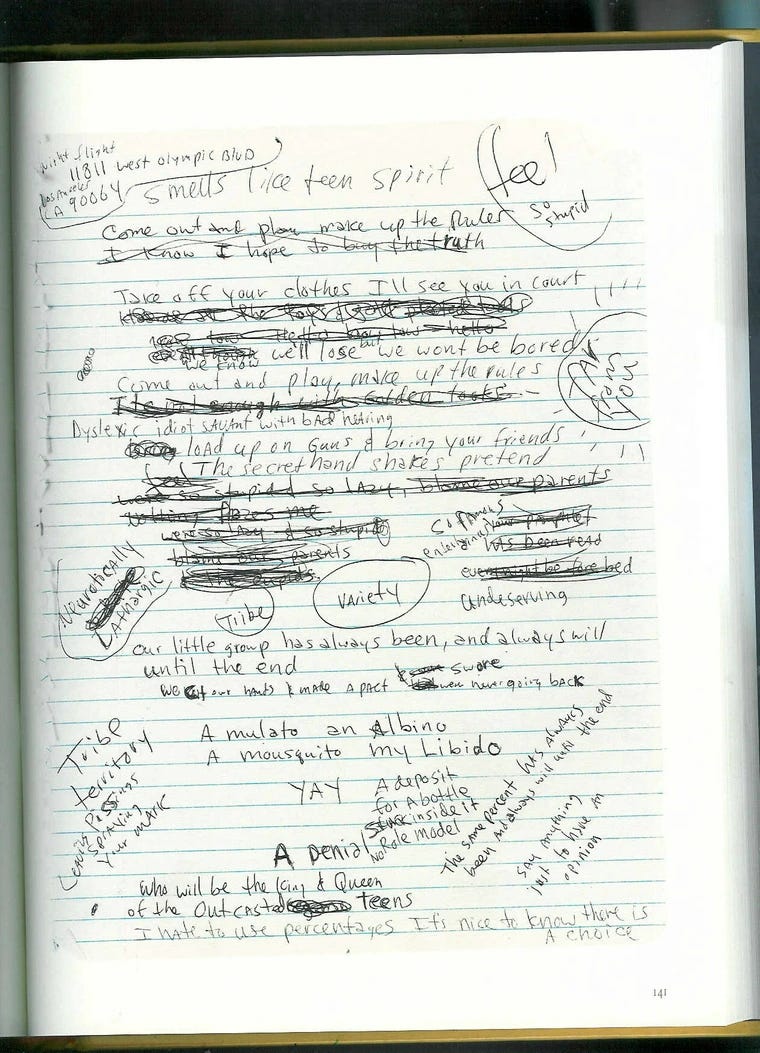 night flight
11811 west olympic BLVD
Los Angeles
CA 90064
smells like teen spirit
feel
so
stupid
Come out and play make up the Rules
I know I hope to buy the truth
Take off your clothes I'll see you in court
hello how low hello
we know we'll lose but we wont be bored
Come out and play, make up the rules
TAR
YOU
Dyslexic idiot SAVANT with bAd hEAring
LOAd up on Guns & bring your friends
The secret hand shakes pretend
were so stupid so lAzy, blame our parents
nothing fazes me
were so lAzy & so stupid
blame our parents
So Famous
entertaining
has been read
bed
Undeserving
Neurotically
LAthargic
Tribe
VARiETY
our little group has always been, and always will
until the end
we cut our hands & made A pAct
swore
were never going bAcK
Tribe
territory
Spraying
Your MARK
A mulato an Albino
A mousquito my Libido
YAY
A deposit
for A bottle
inside it
No Role model
A Denial
The same percent hAs Always
been And always will until the end
SAy Anything
just to hAve An
opinion
Who will be the King & Queen
of the Outcasted teens
I hAte to use percentages It's nice to know there is
A choice
141